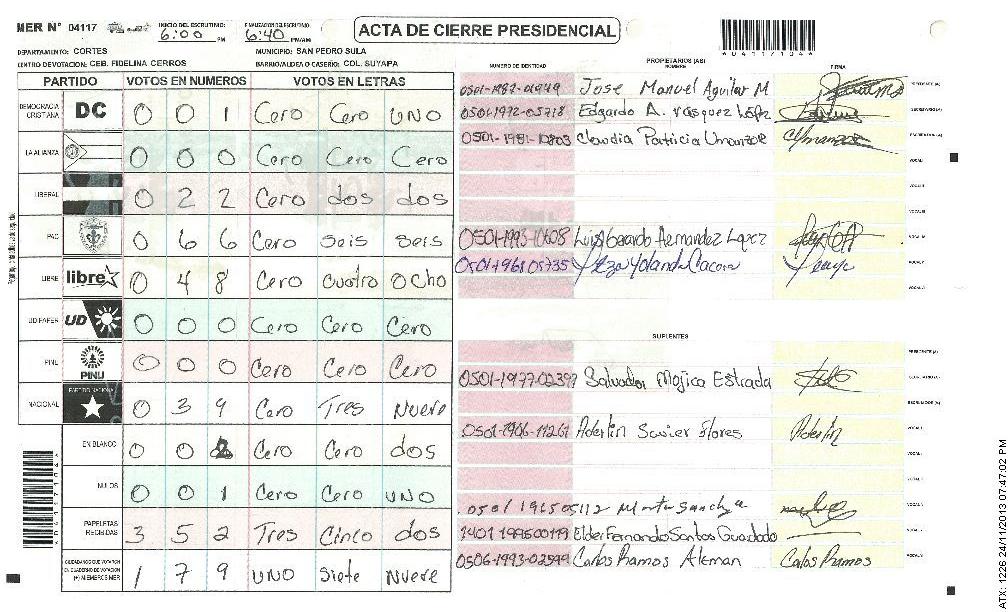 MER N° 04117 INICIO DEL ESCRUTINIO: 6:00 PM FINALIZACION DEL ESCRUTINIO: 6:40 PM/AM
ACTA DE CIERRE PRESIDENCIAL
*04117104*
DEPARTAMENTO: CORTES MUNICIPIO: SAN PEDRO SULA
CENTRO DE VOTACION: CEB. FIDELINA CERROS BARRIO/ALDEA O CASERIO: COL. SUYAPA
PARTIDO VOTOS EN NUMEROS VOTOS EN LETRAS
DEMOCRACIA CRISTIANA DC 0 0 1 Cero Cero UNO
LA ALIANZA 0 0 0 Cero Cero Cero
LIBERAL 0 2 2 Cero dos dos
PAC 0 6 6 Cero seis seis
LIBRE libre 0 4 8 Cero cuatro Ocho
UD FAPER UD 0 0 0 Cero Cero Cero
PINU PINU 0 0 0 Cero Cero Cero
NACIONAL PARTIDO NACIONAL 0 3 9 Cero Tres Nueve
EN BLANCO 0 0 2 Cero Cero dos
NULOS 0 0 1 Cero Cero UNO
PAPELETAS RECIBIDAS 3 5 2 Tres Cinco dos
CIUDADANOS QUE VOTARON EN CUADERNO DE VOTACION (+) MIEMBROS MER 1 7 9 UNO Siete Nueve
NUMERO DE IDENTIDAD PROPIETARIOS (AS) NOMBRE FIRMA
Jose Manuel Aguilar M PRESIDENTE (A)
0501-1972-05718 Edgardo A. Vasquez López SECRETARIO (A)
0501-1981-10803 Claudia Patricia Umanzor ESCRUTADOR (A)
VOCAL I
VOCAL II
VOCAL III
0501-1993-10608 Luis Gerardo Hernandez Lopez VOCAL IV
0501-1961 05735 Yolanda VOCAL V
VOCAL VI
SUPLENTES
PRESIDENTE (A)
0501-1977-02397 Salvador Mojica Estrada SECRETARIO (A)
ESCRUTADOR (A)
0501-1986-11261 Aderlin Savier Flores Aderlin VOCAL I
VOCAL II
VOCAL III
0501 1965 05112 VOCAL IV
Elder Fernando Santos Guardado
0506-1993-02599 Carlos Ramos Aleman Carlos Ramos
ATX: 1226 24/11/2013 07:47:02 PM